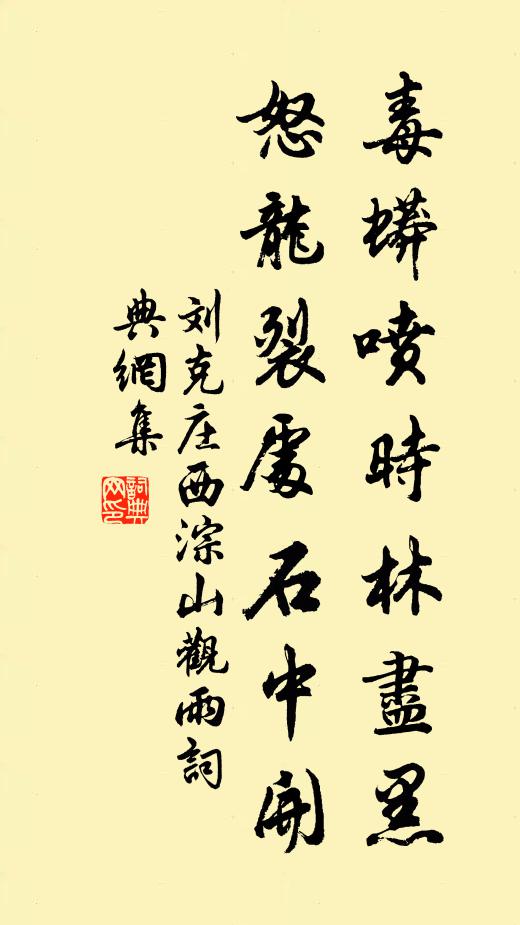 毒蟒噴時林盡黑
怒龍裂處石中開
刘克庄西淙山觀雨詞
典網集
詞典網印